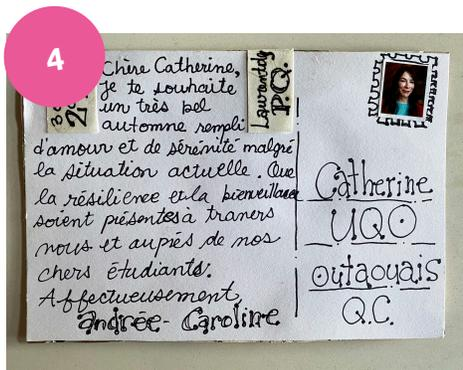 4
Chère Catherine,
je te souhaite
un très bel
automne rempli
d'amour et de sérénité malgré
la situation actuelle. Que
la résilience et la bienveillance
soient présentes à travers
nous et auprès de nos
chers étudiants.
Affectueusement,
andrée-Caroline
Laurentides
P.Q.
Catherine
UQO
Outaouais
Q.C.